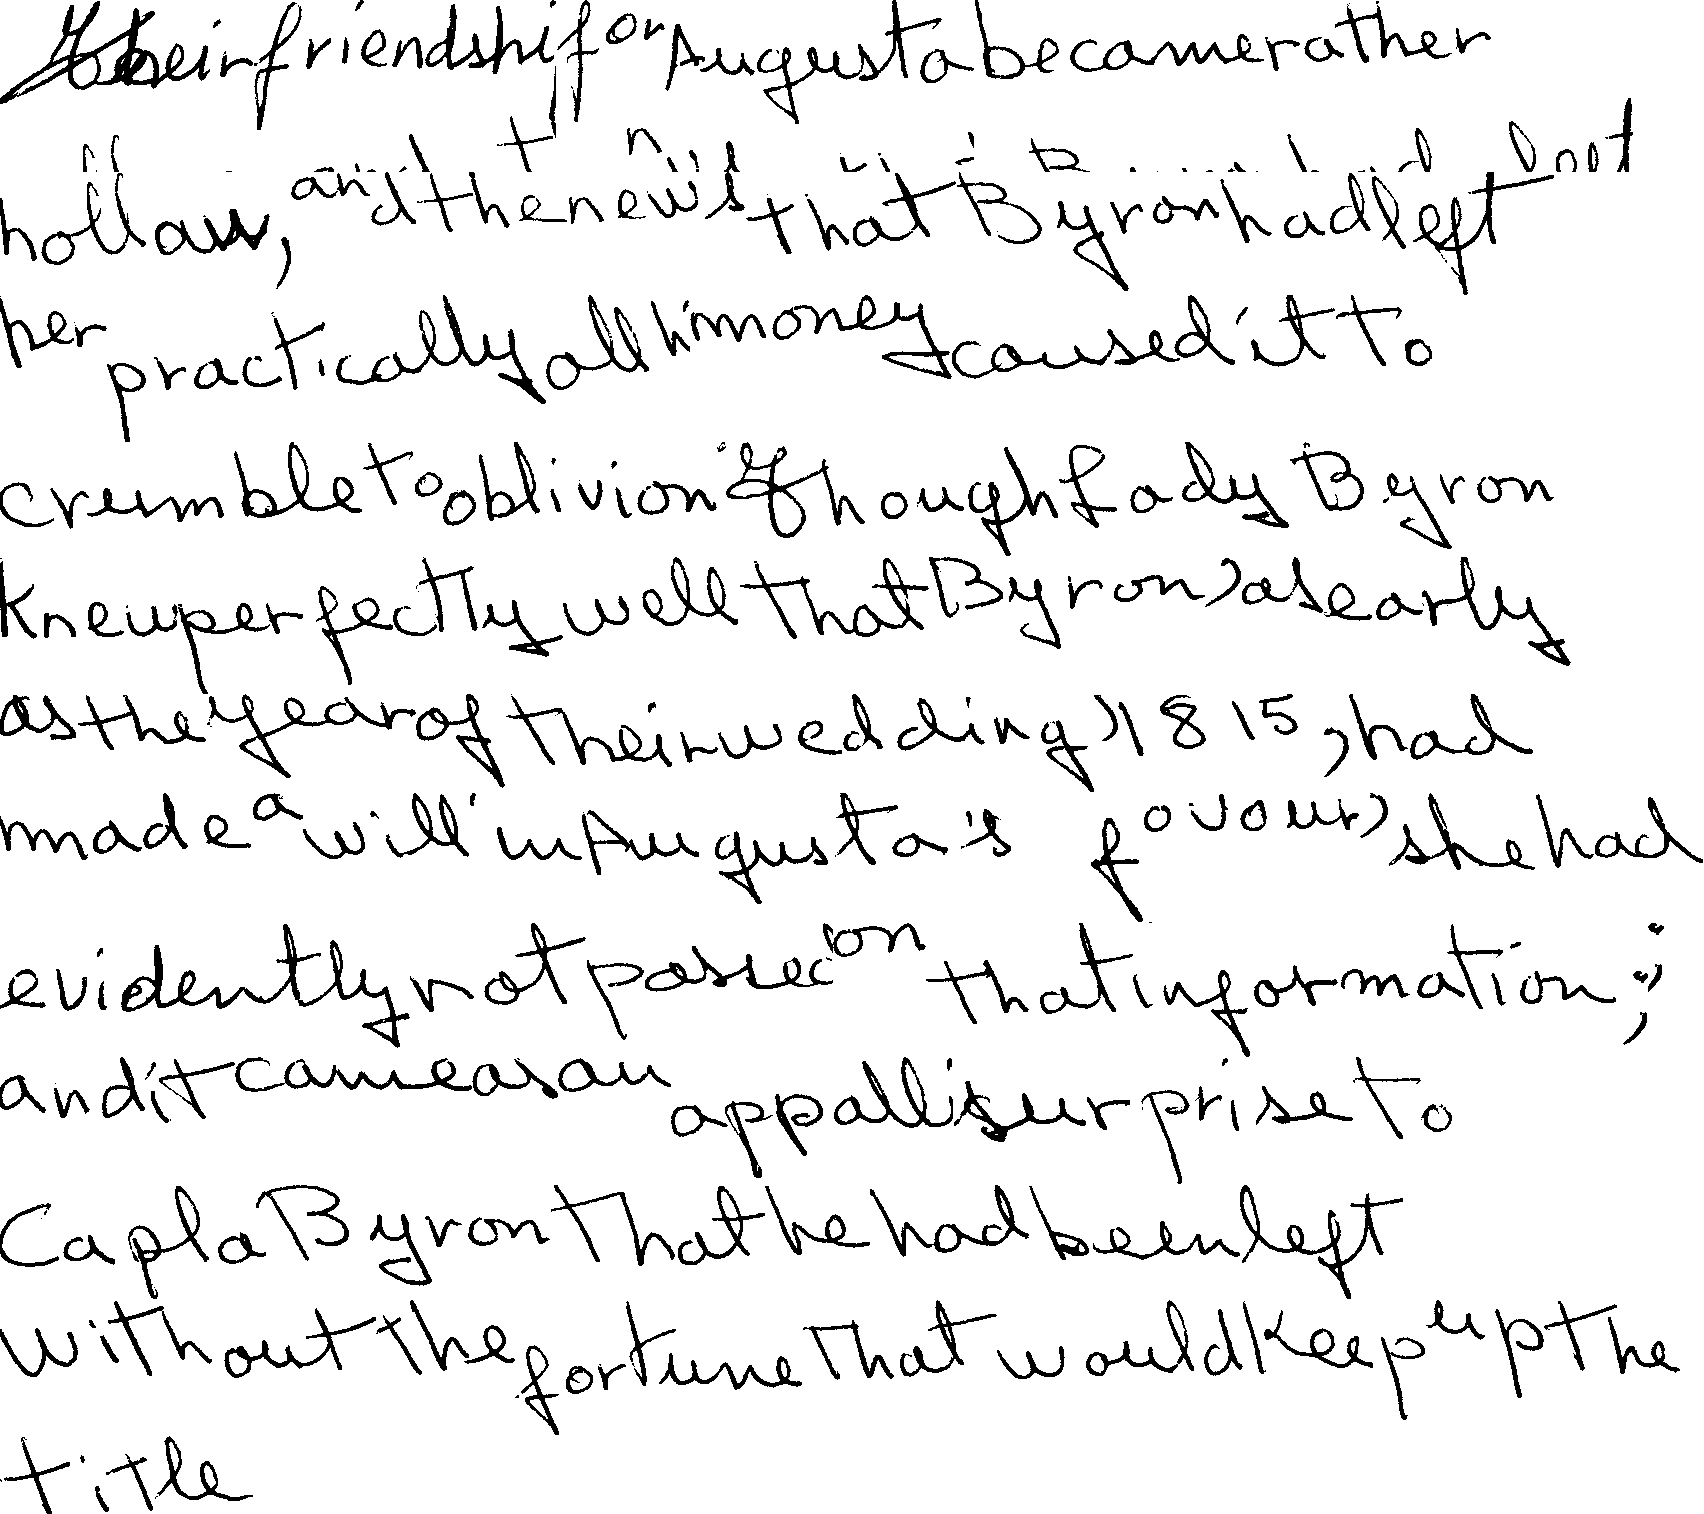 their friendship for Augusta became rather
hollow, and the news that Byron had left
her practically all his money caused it to
crumble to oblivion. Though Lady Byron
knew perfectly well that Byron, as early
as the year of their wedding, 1815, had
made a will in Augusta's favour, she had
evidently not passed on that information;
and it came as an appalli surprise to
Capla Byron that he had been left
without the fortune that would keep up the
title